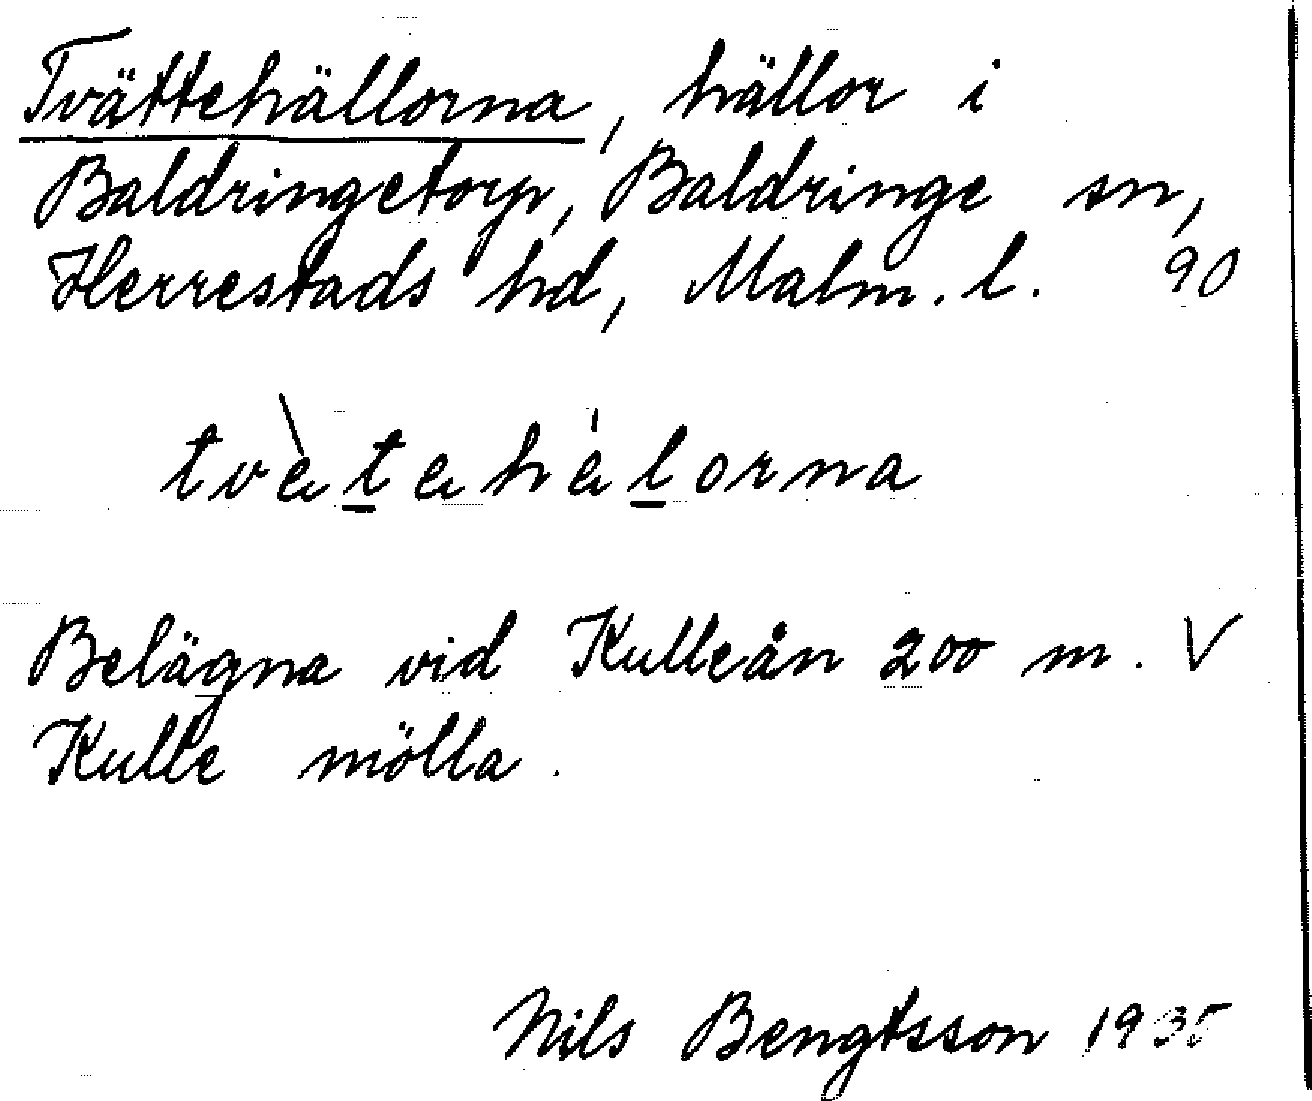 Tvättehällorna, hällor i
Baldringetorp, Baldringe sn,
Herrestads hd, Malm. l. 90
tvὲtɛhɛ́lorna
Belägna vid Kulleån 200 m. V
Kulle mölla.
Nils Bengtsson 1935